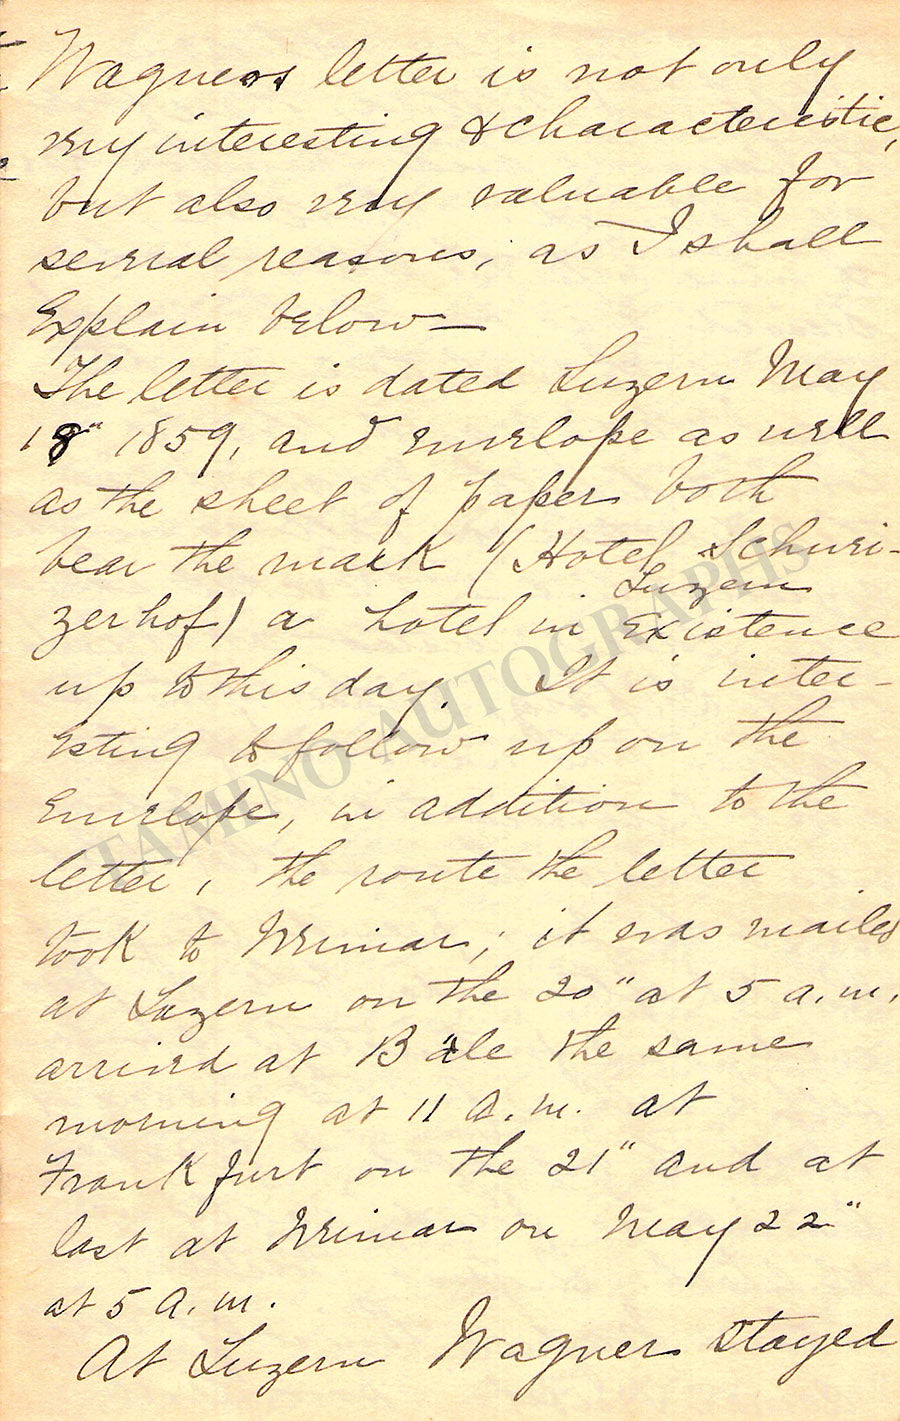 Wagners letter is not only
very interesting & characteristic,
but also very valuable for
several reasons, as I shall
Explain below—
The letter is dated Luzern May
18" 1859, and envelope as well
as the sheet of paper both
bear the mark (Hotel Schwei-
zerhof) a hotel in Luzern Existence
up to this day. It is inter-
Esting to follow up on the
Envelope, in addition to the
letter, the route the letter
took to Weimar; it was mailed
at Luzern on the 20" at 5 a.m.
arrived at Bale the same
morning at 11 a.m. at
Frankfurt on the 21" and at
last at Weimar on May 22"
at 5 a.m.
At Luzern Wagner stayed
TAMINO AUTOGRAPHS